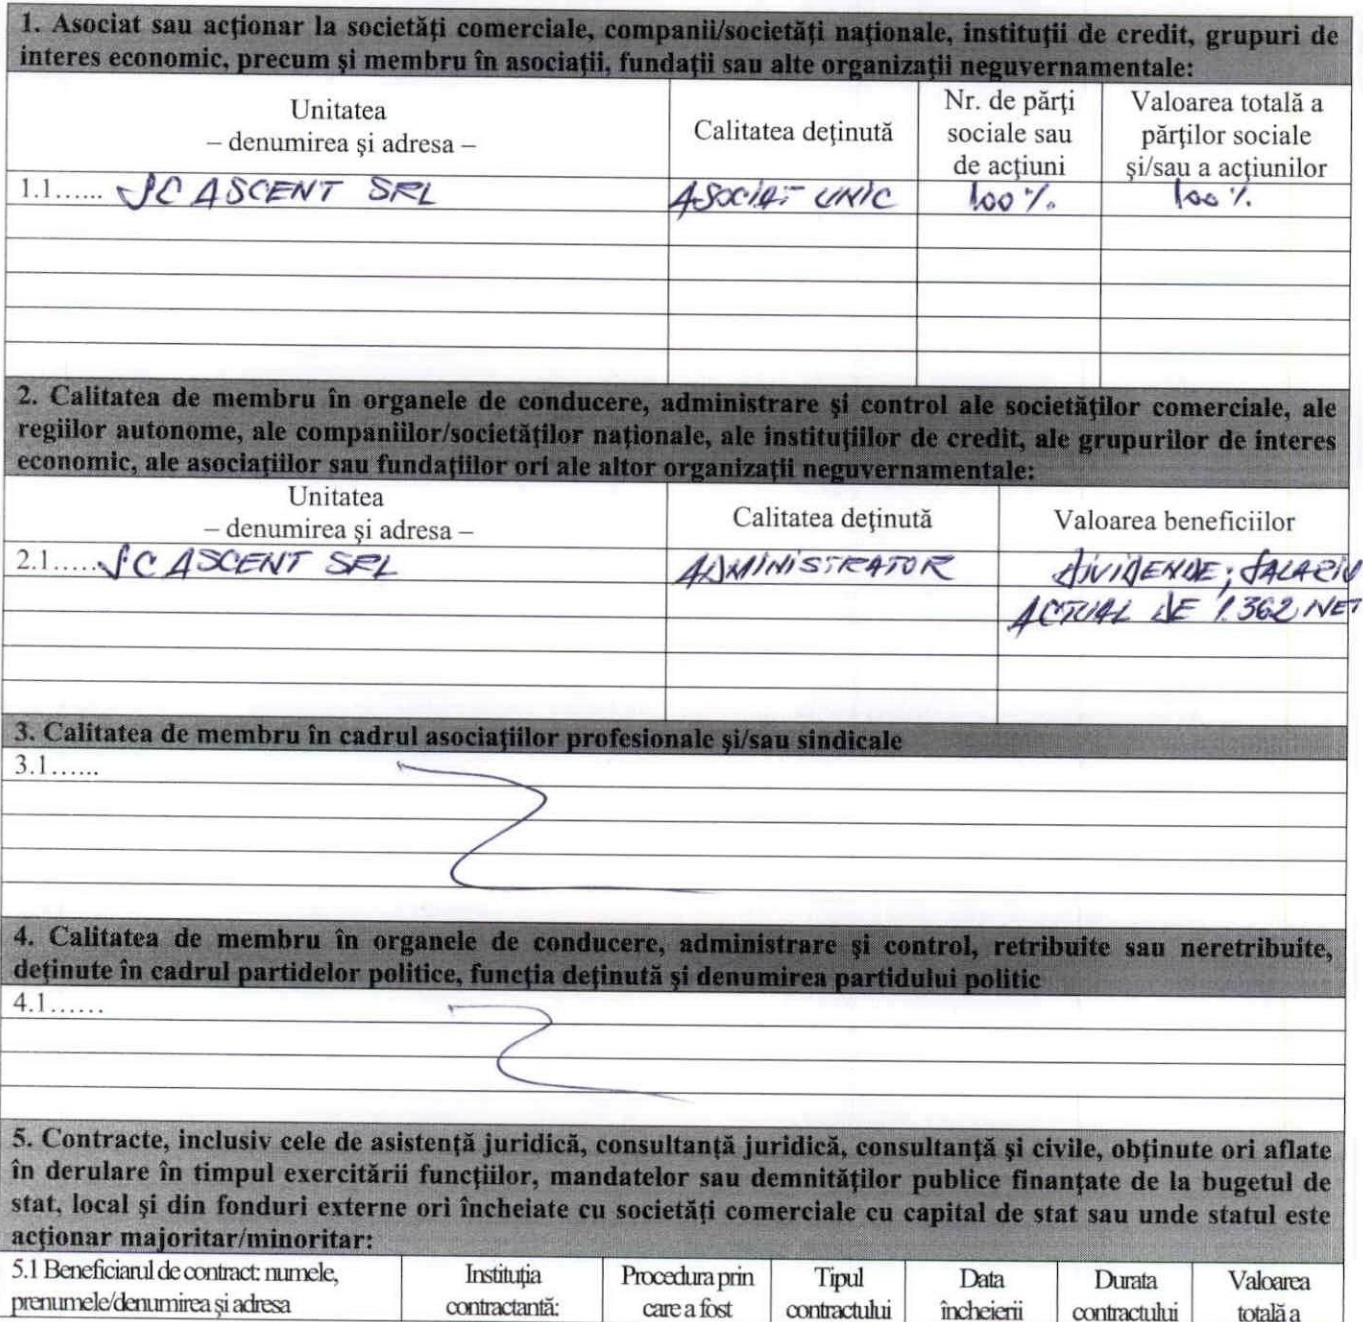 1. Asociat sau acţionar la societăţi comerciale, companii/societăţi naţionale, instituţii de credit, grupuri de
interes economic, precum şi membru în asociaţii, fundaţii sau alte organizaţii neguvernamentale:
Unitatea
– denumirea şi adresa –
Calitatea deţinută
Nr. de părţi
sociale sau
de acţiuni
Valoarea totală a
părţilor sociale
şi/sau a acţiunilor
1.1...... SC ASCENT SRL
ASOCIAT UNIC
100 %
100 %
2. Calitatea de membru în organele de conducere, administrare şi control ale societăţilor comerciale, ale
regiilor autonome, ale companiilor/societăţilor naţionale, ale instituţiilor de credit, ale grupurilor de interes
economic, ale asociaţiilor sau fundaţiilor ori ale altor organizaţii neguvernamentale:
Unitatea
– denumirea şi adresa –
Calitatea deţinută
Valoarea beneficiilor
2.1..... SC ASCENT SRL
ADMINISTRATOR
DIVIDENDE; SALARIU
ACTUAL DE 1.362 NET
3. Calitatea de membru în cadrul asociaţiilor profesionale şi/sau sindicale
3.1......
4. Calitatea de membru în organele de conducere, administrare şi control, retribuite sau neretribuite,
deţinute în cadrul partidelor politice, funcţia deţinută şi denumirea partidului politic
4.1......
5. Contracte, inclusiv cele de asistenţă juridică, consultanţă juridică, consultanţă şi civile, obţinute ori aflate
în derulare în timpul exercitării funcţiilor, mandatelor sau demnităţilor publice finanţate de la bugetul de
stat, local şi din fonduri externe ori încheiate cu societăţi comerciale cu capital de stat sau unde statul este
acţionar majoritar/minoritar:
5.1 Beneficiarul de contract: numele,
prenumele/denumirea şi adresa
Instituţia
contractantă:
Procedura prin
care a fost
Tipul
contractului
Data
încheierii
Durata
contractului
Valoarea
totală a